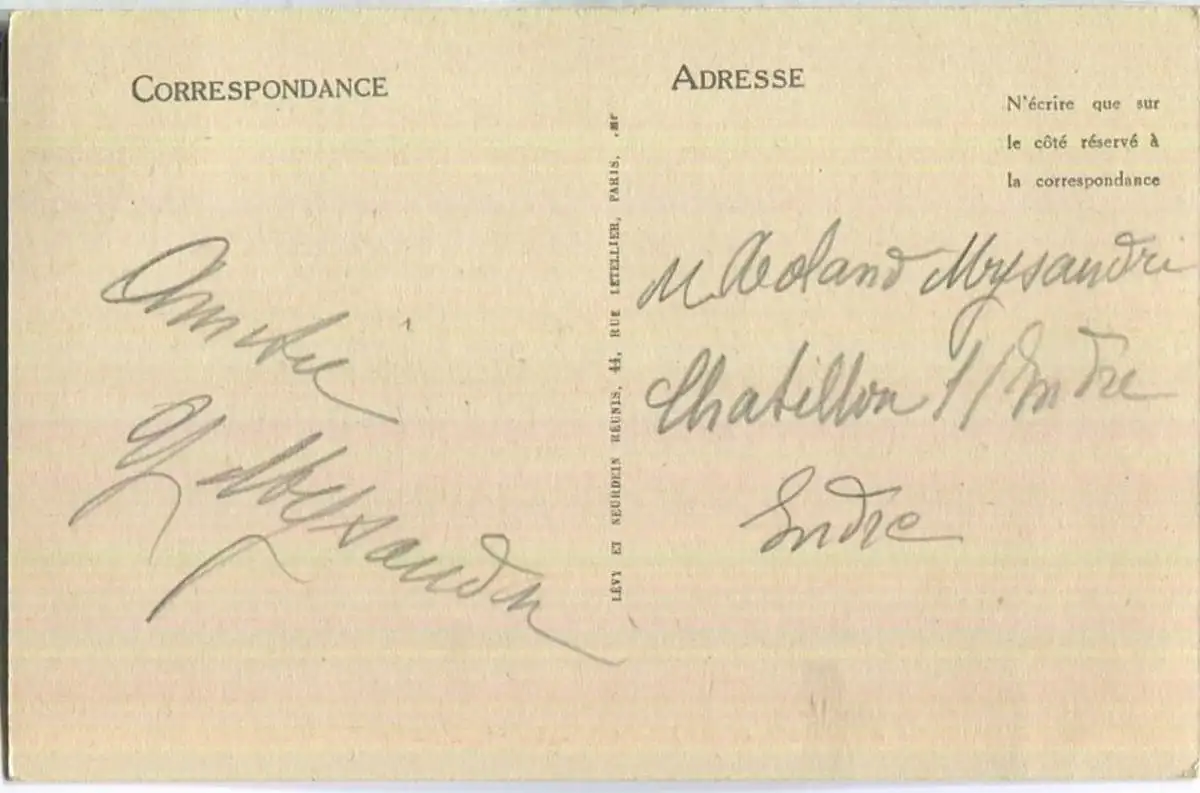 CORRESPONDANCE
Amitié
ADRESSE
N'écrire que sur
le côté réservé à
la correspondance
LÉVY ET NEURDEIN RÉUNIS, 44, RUE LETELLIER, PARIS.
M Roland Mysandri
Chatillon s/Indre
Indre